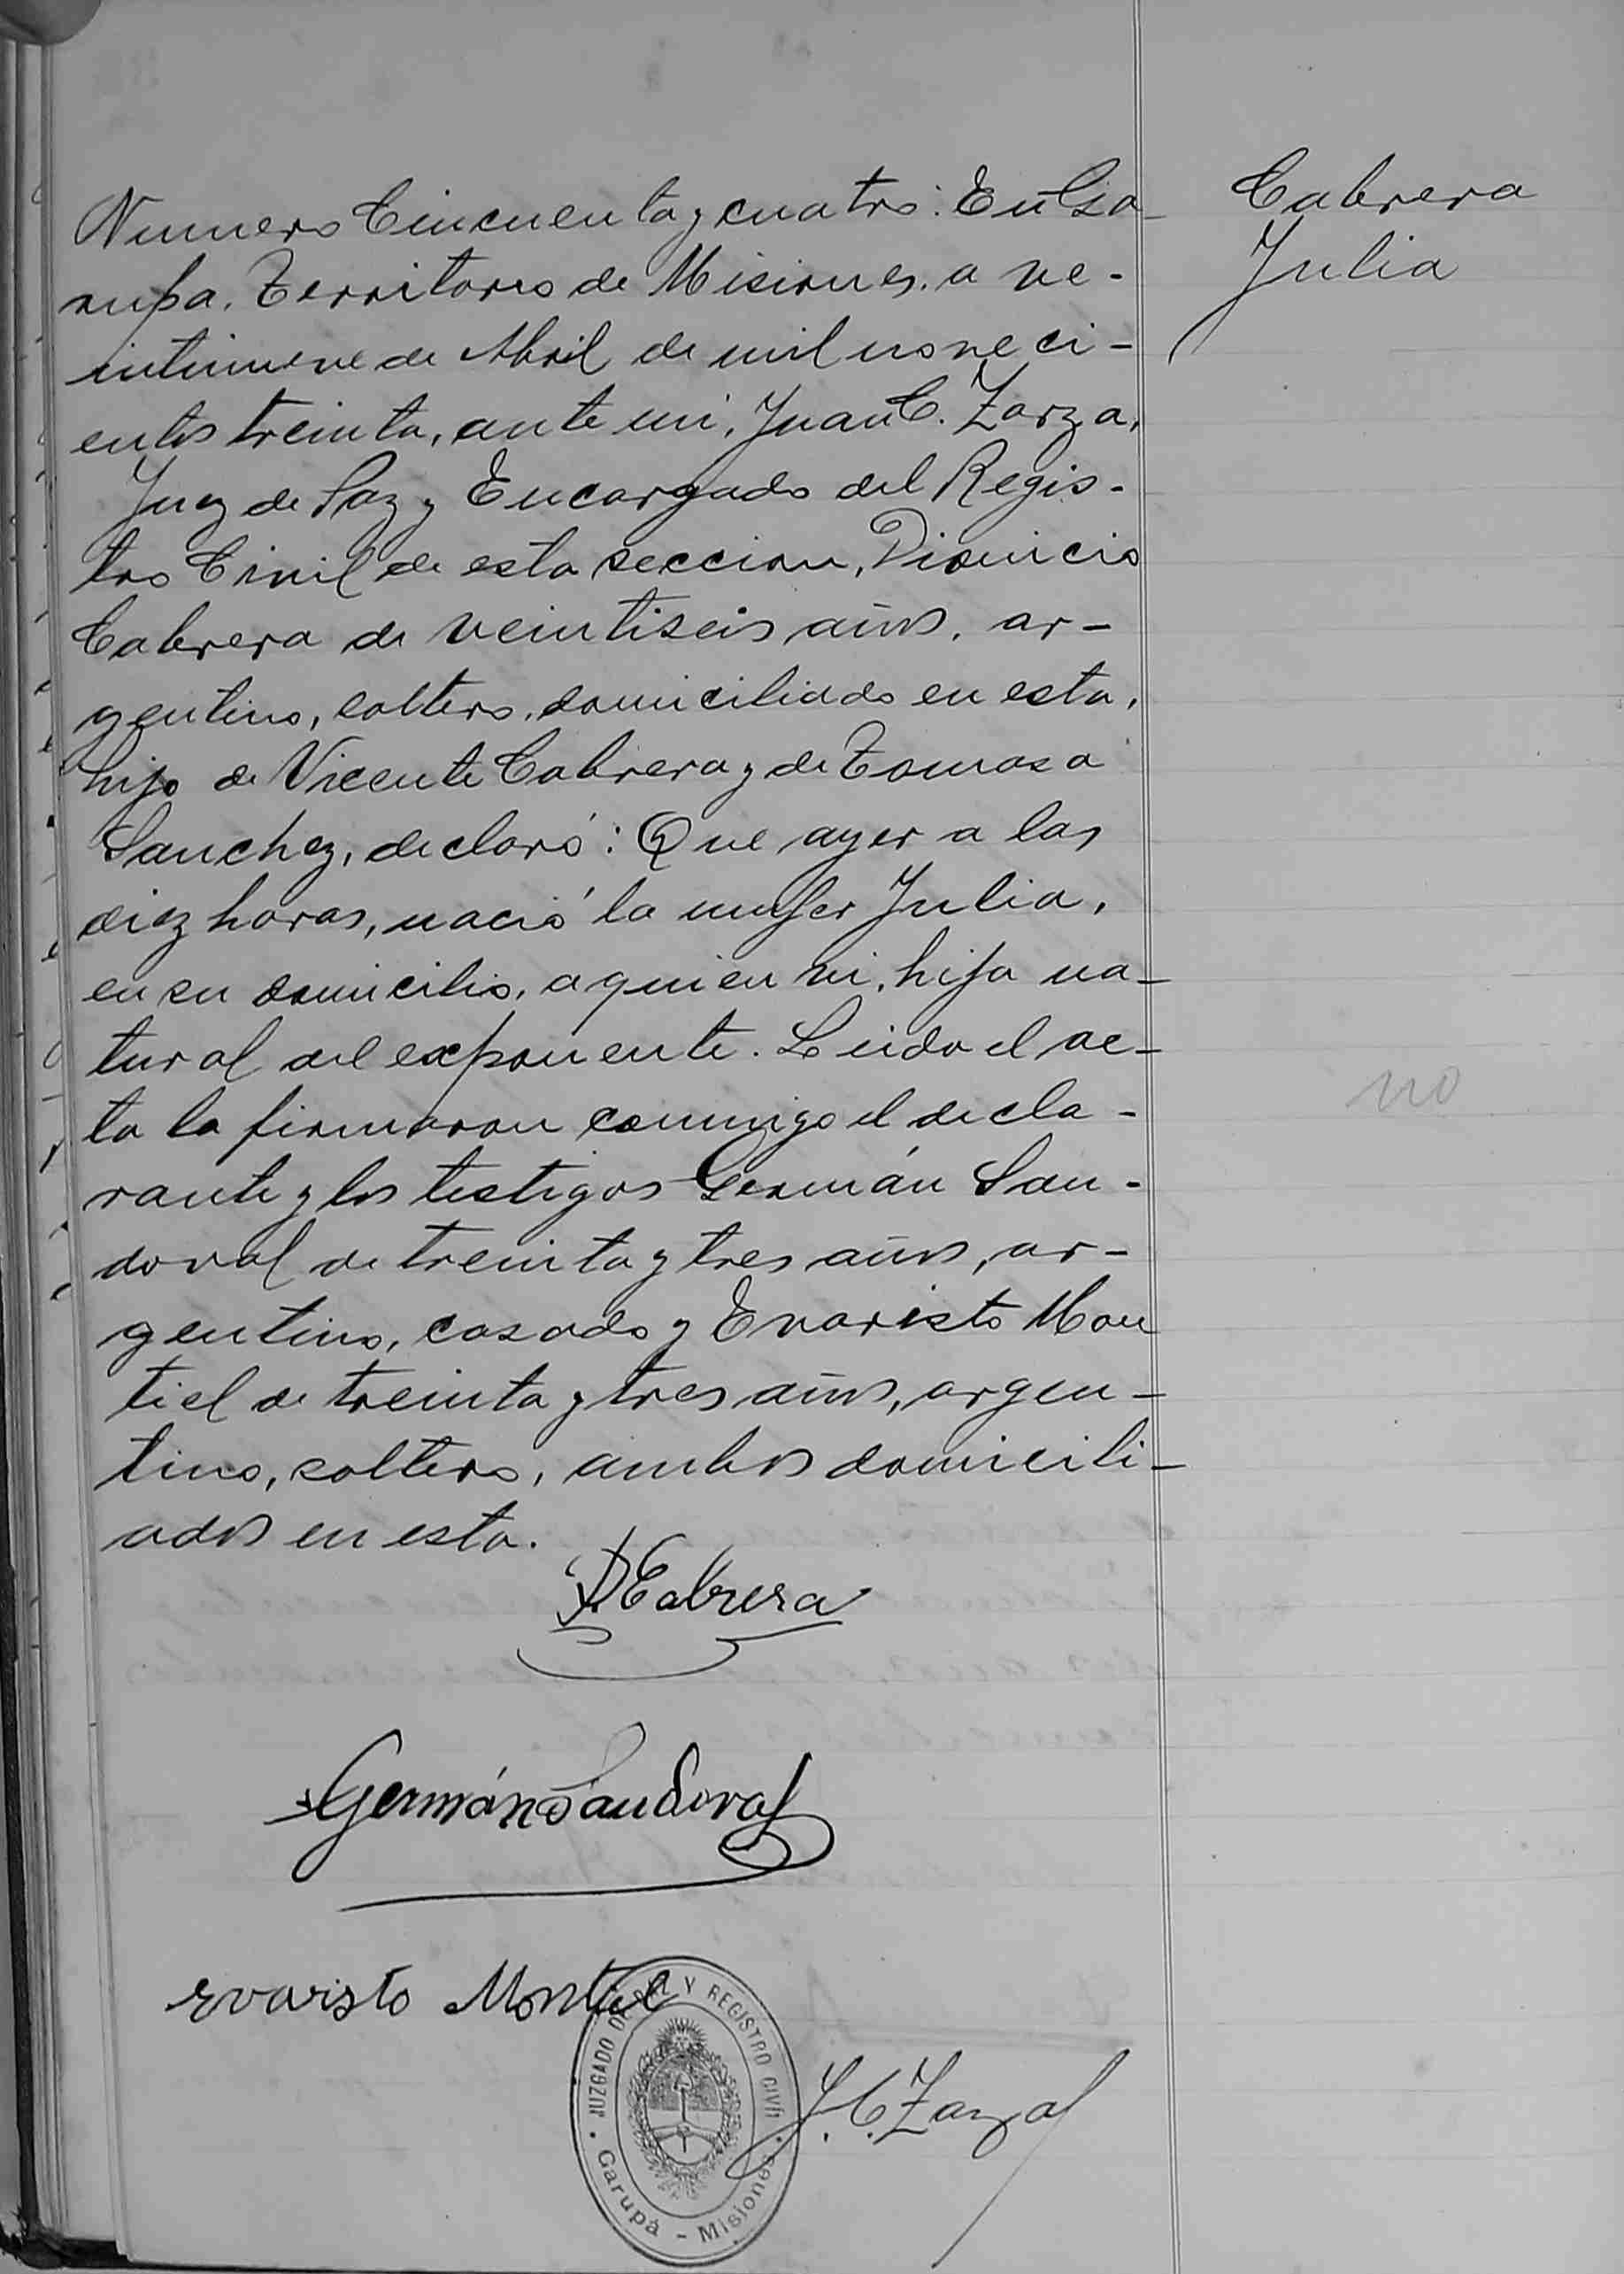 Cabrera
Julia
Numero Cincuenta y cuatro: En Ga-
rupa. Territorio de Misiones. a ve-
intinueve de Abril de mil noveci-
entos treinta, ante mi, Juan C. Zarza,
Juez de Paz y Encargado del Regis-
tro Civil de esta seccion, Dionicio
Cabrera de veintiseis años, ar-
gentino, soltero, domiciliado en esta,
hijo de Vicente Cabrera y de Tomasa
Sanchez, declaró: Que ayer a las
diez horas, nació la mujer Julia,
en su domicilio, a quien vi, hija na-
tural del exponente. Leida el ac-
ta la firmaron conmigo el decla-
rante y los testigos Germán San-
doval de treinta y tres años, ar-
gentino, casado y Evaristo Mon
tiel de treinta y tres años, argen-
tino, soltero, ambos domicili-
ados en esta.
no
D Cabrera
Germán Sandoval
Evaristo Montiel
JUZGADO DE PAZ Y REGISTRO CIVIL
Garupá - Misiones
J. C. Zarza